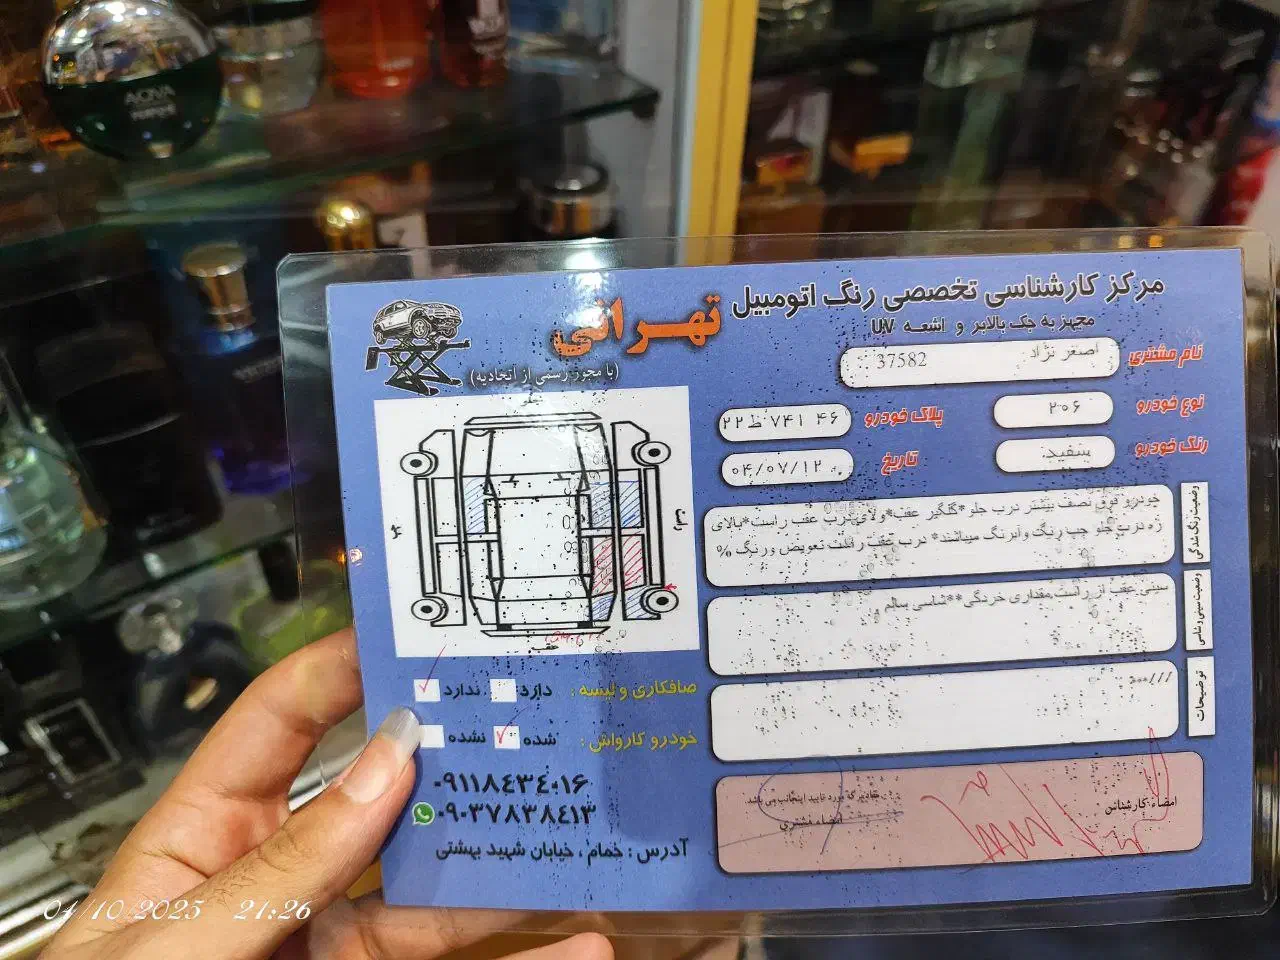 AQVA
مرکز کارشناسی تخصصی رنگ اتومبیل
تهرانی
مجهز به جک بالابر و اشعه UV
(با مجوز رسمی از اتحادیه)
نام مشتری
اصغر نژاد
37582
نوع خودرو
۲۰۶
پلاک خودرو
۲۲ط۷۴۱ ۴۶
رنگ خودرو
سفید
تاریخ
۰۴/۰۷/۱۲
جلو
راست
وضعیت رنگ شدگی
خودرو فوق نصف بیشتر درب جلو*گلگیر عقب*ولای درب عقب راست*بالای
زه درب جلو چپ رنگ وآبرنگ میباشند* درب عقب راست تعویض ورنگ %
وضعیت سینی و شاسی
سینی عقب از راست مقداری خردگی**شاسی سالم
توضیحات
صافکاری و لیسه : دارد ندارد
خودرو کارواش : شده نشده
۰۹۱۱۸۴۳۴۰۱۶
۰۹۰۳۷۸۳۸۴۱۳
آدرس : خمام ، خیابان شهید بهشتی
مورد تایید اینجانب می باشد
امضاء مشتری
امضاء کارشناس
04/10/2025 21:26